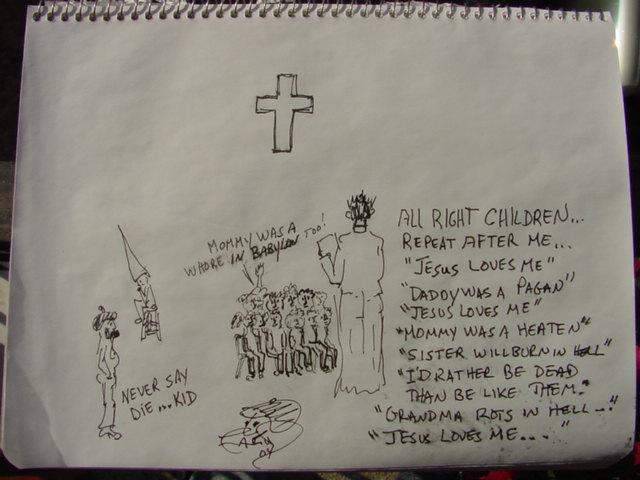 MOMMY WAS A
WHORE IN BABYLON TOO!
NEVER SAY
DIE...KID
ALL RIGHT CHILDREN...
REPEAT AFTER ME...
"JESUS LOVES ME"
"DADDY WAS A PAGAN"
"JESUS LOVES ME"
"MOMMY WAS A HEATEN"
"SISTER WILL BURN IN HELL"
"I'D RATHER BE DEAD
THAN BE LIKE THEM."
"GRANDMA ROTS IN HELL..."
"JESUS LOVES ME...."